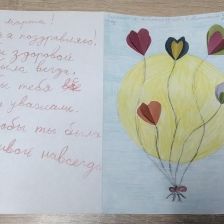 марта!
я поздравляю!
здоровой
была всегда,
тебя все
уважали.
чтобы ты была
навсегда